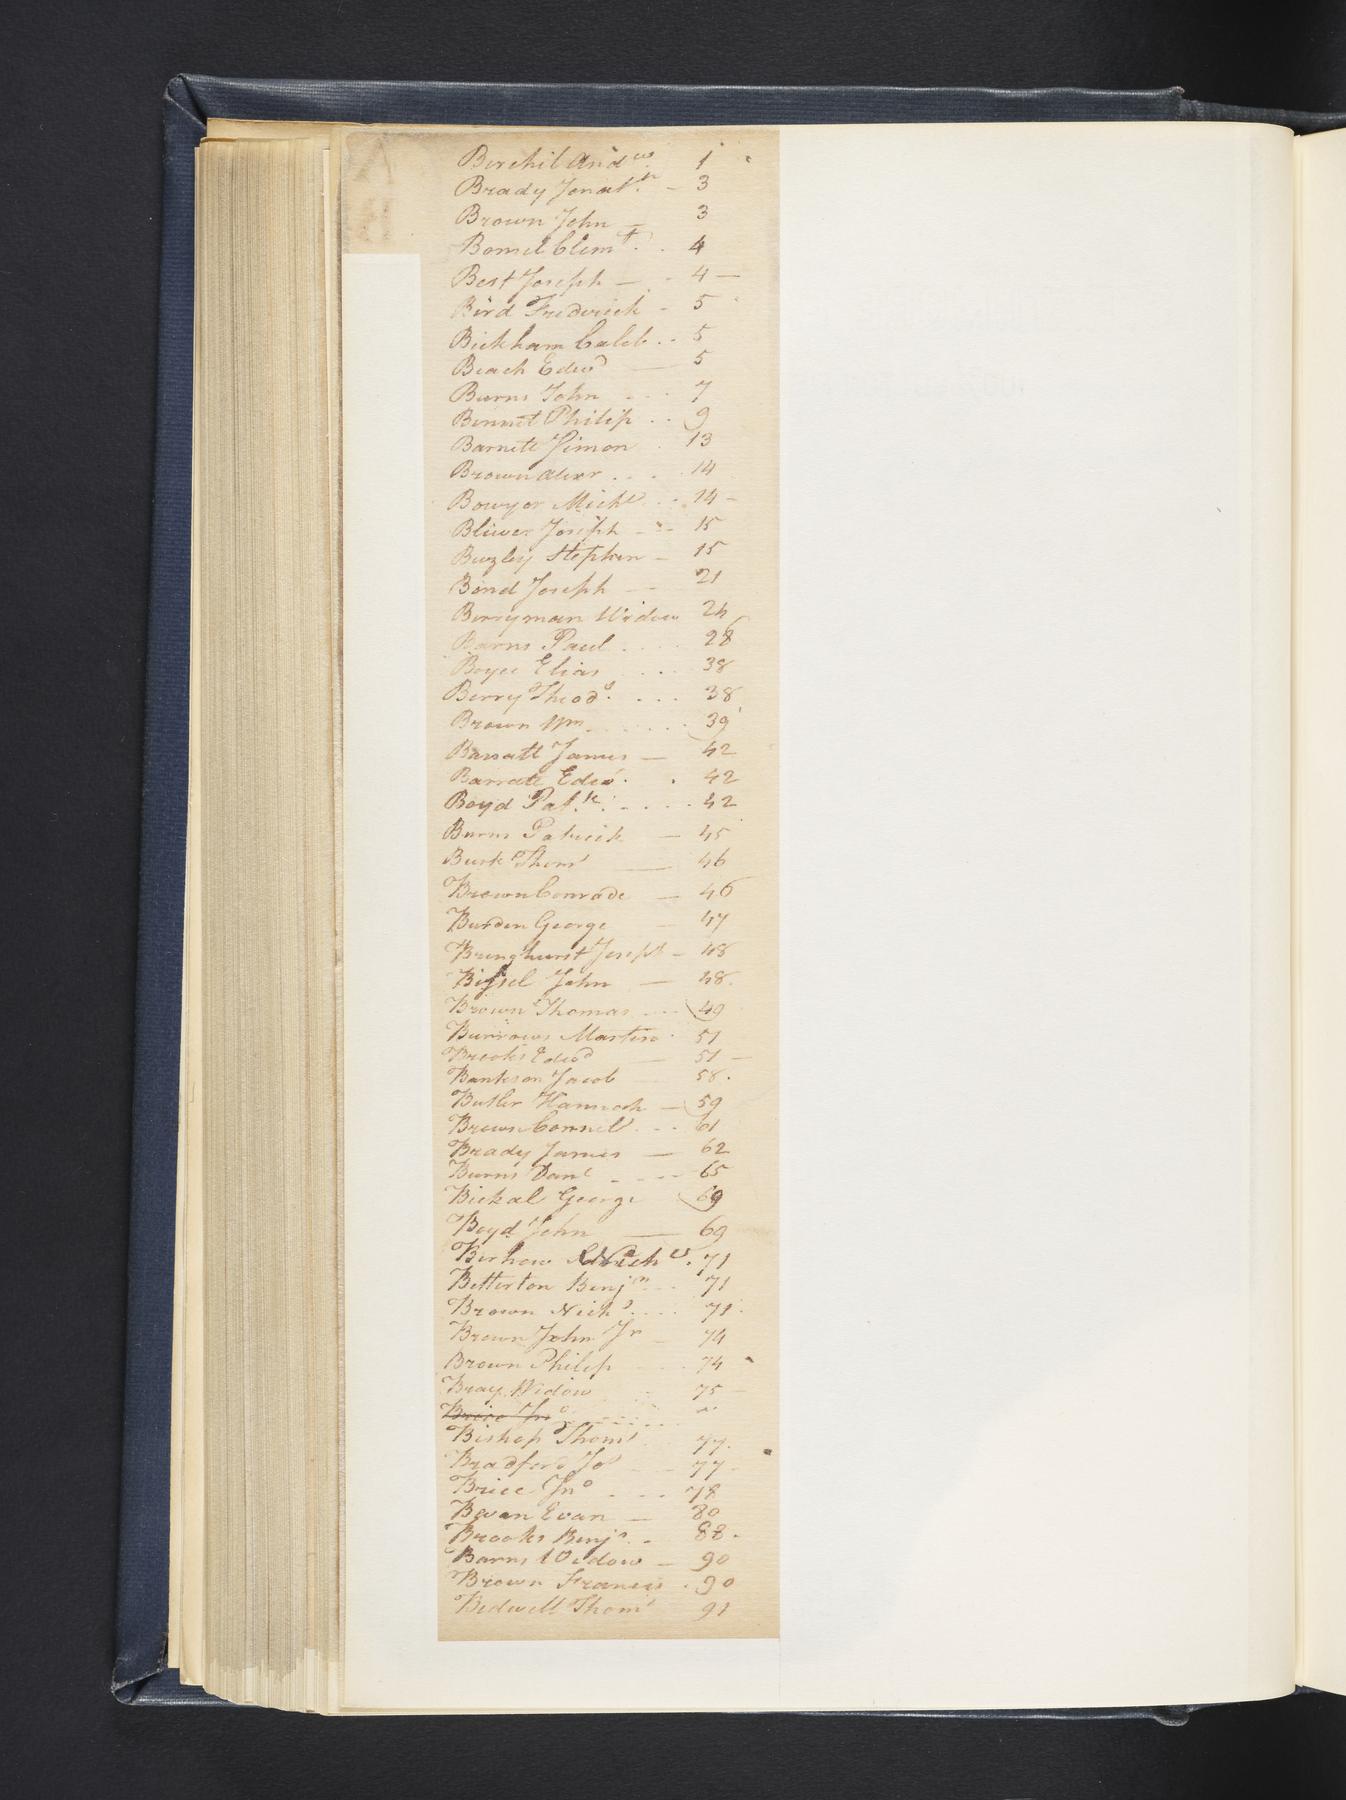 Berchil Andw 1
Brady Jonatn. - 3
Brown John - 3
Bomel Clemt. . 4
Best Joseph - . 4 -
Bird Frederick - 5
Bickham Caleb . . 5
Beach Edwd - 5
Burns John . . . 7
Bennet Philip . . 9
Barnett Simon . 13
Brown Alexr . . . 14
Bowyer Michl . . 14 -
Bliwer Joseph - - - 15
Buzley Stephen - 15
Bond Joseph - - 21
Berryman Widow 24
Barns Paul . . . . 28
Boyce Elias . . . 38
Berry Thods. . . . 38
Brown Wm . . . . . 39
Barratt James - 42
Barratt Edwd. . 42
Boyd Patk. . . . . 42
Burns Patrick - 45
Burk Thoms - 46
Brown Conrade - 46
Burden George - 47
Bringhurst Joseph - 48
Bissel John - 48.
Brown Thomas - - - 49
Burrows Martin . 51
Brooks Edwd - 51 -
Bankson Jacob - 58.
Butler Hannah - 59
Brown Cornels . . . 61
Brady James - 62
Burns Danl - - - - 65
Bickal George 69
Boyd John - 69
71
Betterton Benjn . . 71
Brown Nichs . . . . 71.
Brown John Jr - 74
Brown Philip . . . . 74
Bray Widow - 75 -
Brice Jno . . . . . . "
Bishop Thoms 77.
Bradford Jos - - 77 -
Brice Jno . - - - 78
Bevan Evan - 80
Brooks Benjn. . 88.
Barns Widow - 90
Brown Francis . 90
Bedwell Thoms 91